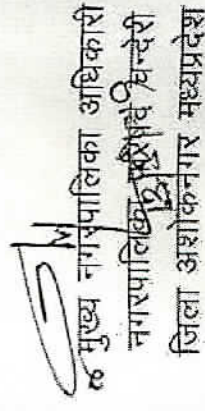 मुख्य नगरपालिका अधिकारी
नगरपालिका परिषद चन्देरी
जिला अशोकनगर मध्यप्रदेश